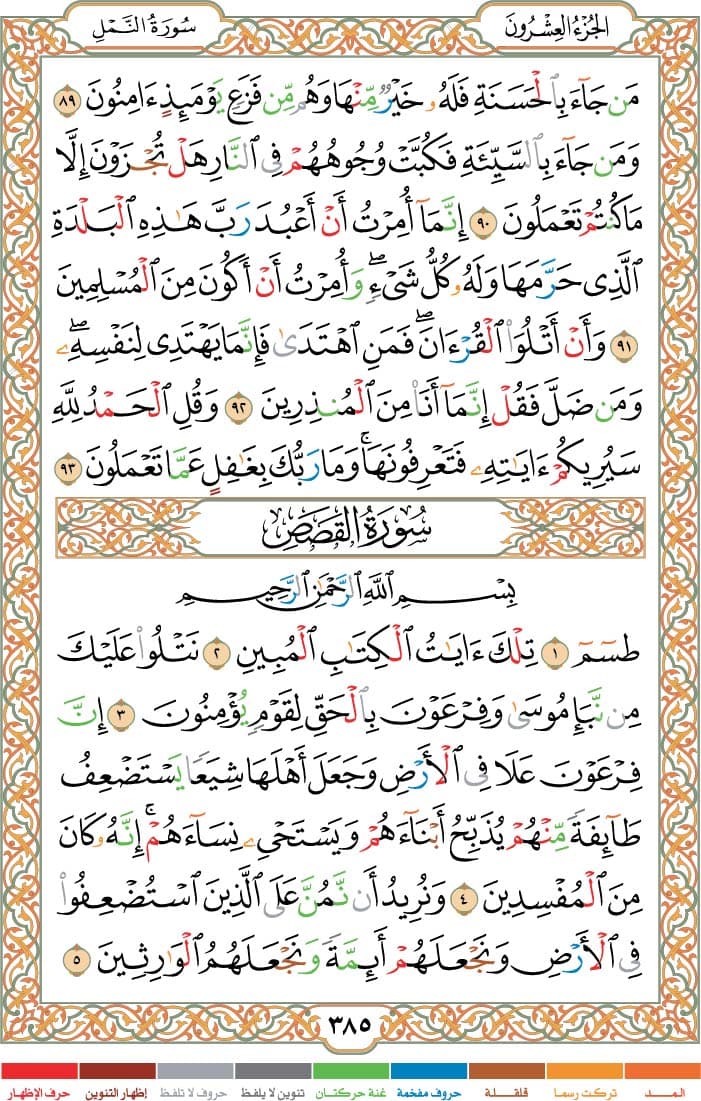 الجُزْءُ العِشْرُونَ
سُورَةُ النَّمْلِ
مَن جَآءَ بِٱلْحَسَنَةِ فَلَهُۥ خَيْرٌۭ مِّنْهَا وَهُم مِّن فَزَعٍۢ يَوْمَئِذٍ ءَامِنُونَ ٨٩
وَمَن جَآءَ بِٱلسَّيِّئَةِ فَكُبَّتْ وُجُوهُهُمْ فِى ٱلنَّارِ هَلْ تُجْزَوْنَ إِلَّا
مَا كُنتُمْ تَعْمَلُونَ ٩٠ إِنَّمَآ أُمِرْتُ أَنْ أَعْبُدَ رَبَّ هَـٰذِهِ ٱلْبَلْدَةِ
ٱلَّذِى حَرَّمَهَا وَلَهُۥ كُلُّ شَىْءٍۢ ۖ وَأُمِرْتُ أَنْ أَكُونَ مِنَ ٱلْمُسْلِمِينَ
٩١ وَأَنْ أَتْلُوَا۟ ٱلْقُرْءَانَ ۖ فَمَنِ ٱهْتَدَىٰ فَإِنَّمَا يَهْتَدِى لِنَفْسِهِۦ ۖ
وَمَن ضَلَّ فَقُلْ إِنَّمَآ أَنَا۠ مِنَ ٱلْمُنذِرِينَ ٩٢ وَقُلِ ٱلْحَمْدُ لِلَّهِ
سَيُرِيكُمْ ءَايَـٰتِهِۦ فَتَعْرِفُونَهَا ۚ وَمَا رَبُّكَ بِغَـٰفِلٍ عَمَّا تَعْمَلُونَ ٩٣
سُورَةُ القَصَصِ
بِسْمِ ٱللَّهِ ٱلرَّحْمَـٰنِ ٱلرَّحِيمِ
طسٓمٓ ١ تِلْكَ ءَايَـٰتُ ٱلْكِتَـٰبِ ٱلْمُبِينِ ٢ نَتْلُوا۟ عَلَيْكَ
مِن نَّبَإِ مُوسَىٰ وَفِرْعَوْنَ بِٱلْحَقِّ لِقَوْمٍۢ يُؤْمِنُونَ ٣ إِنَّ
فِرْعَوْنَ عَلَا فِى ٱلْأَرْضِ وَجَعَلَ أَهْلَهَا شِيَعًۭا يَسْتَضْعِفُ
طَآئِفَةًۭ مِّنْهُمْ يُذَبِّحُ أَبْنَآءَهُمْ وَيَسْتَحْىِۦ نِسَآءَهُمْ ۚ إِنَّهُۥ كَانَ
مِنَ ٱلْمُفْسِدِينَ ٤ وَنُرِيدُ أَن نَّمُنَّ عَلَى ٱلَّذِينَ ٱسْتُضْعِفُوا۟
فِى ٱلْأَرْضِ وَنَجْعَلَهُمْ أَئِمَّةًۭ وَنَجْعَلَهُمُ ٱلْوَٰرِثِينَ ٥
٣٨٥
المـــد تركت رسما قلقـلة حروف مفخمة غنة حركتان تنوين لا يلفظ حروف لا تلفظ إظهار التنوين حرف الإظهار